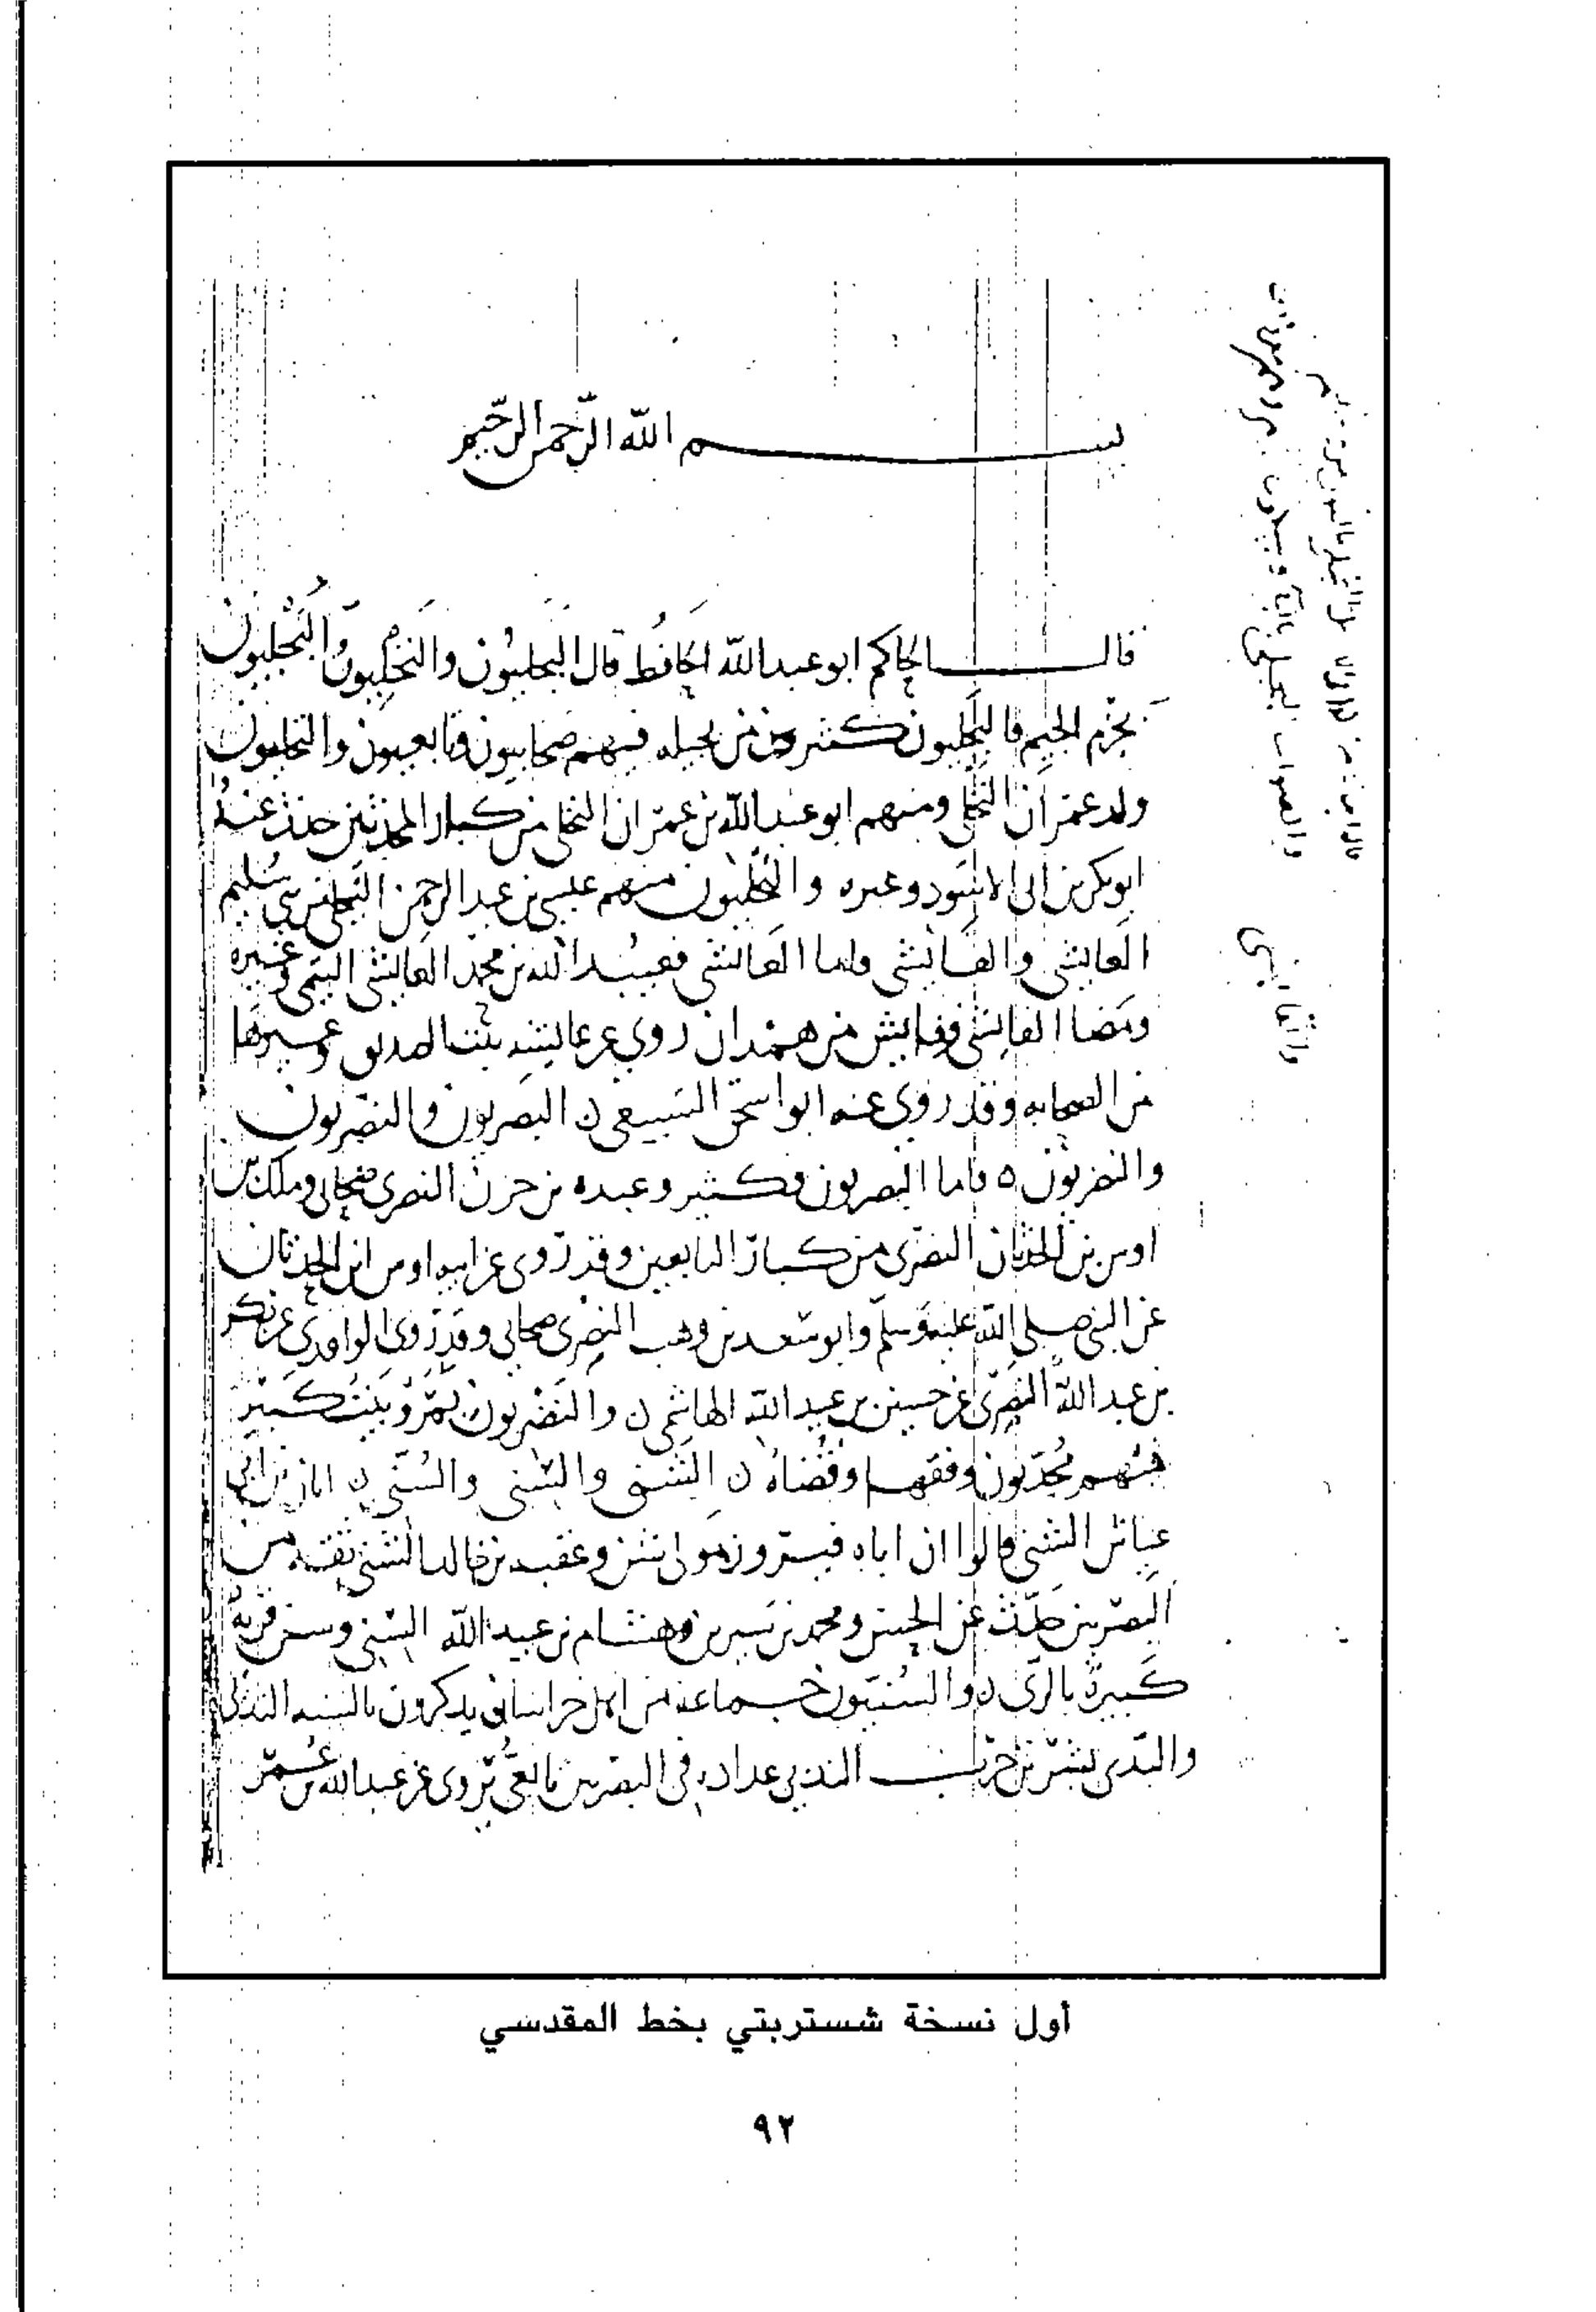 بسم الله الرحمن الرحيم
قال الحاكم ابو عبد الله الحافظ قال البجليون والنخليون والبجليون
بجزم الجيم فالبجليون كثيرون من بجيله فيهم صحابيون وتابعيون والنخليون
ولد عمران النخلي ومنهم ابو عبد الله بن عمران النخلي من كبار المحدثين حدث عنه
ابو بكر بن ابي الاسود وغيره والبجليون منهم عيسى بن عبد الرحمن البجلي من بني سليم
العايشي والفايشي فاما العايشي فعبيد الله بن محمد العايشي التيمي وغيره
الفايشي ففايش من همدان روى عن عايشه بنت الصديق وغيرها
من الصحابه وقد روى عنه ابو اسحق السبيعي ن البصريون والنصريون
والنضريون ٥ فاما البصريون فكثير وعبده بن حزن النصري صحابي وملك بن
اوس بن الحدثان النصري من كبار التابعين وقد روى عن ابيه اوس ابن الحدثان
عن النبي صلى الله عليه وسلم وابو سعد بن وهب النضري صحابي وقد روى الواقدي عن بكر
بن عبد الله النضري عن حسين بن عبد الله الهاشمي ن والنضريون بمرو بيت كبير
فيهم محدثون وفقها وقضاه ن الشني والسني والسني ن ابان بن ابي
عياش الشني قالوا ان اباه فيروز مولى شن وعقبه بن خالد الشني ثقه من
البصريين حدث عن الحسن ومحمد بن سيرين وهشام بن عبيد الله السني وسن قريه
كبيرة بالري ن والسنيون جماعه من اهل خراسان يذكرون بالسنه الندبي
والبدي بشر بن حرب الندبي عداده في البصريين تابعي يروي عن عبد الله بن عمر
أول نسخة شستربتي بخط المقدسي
٩٢